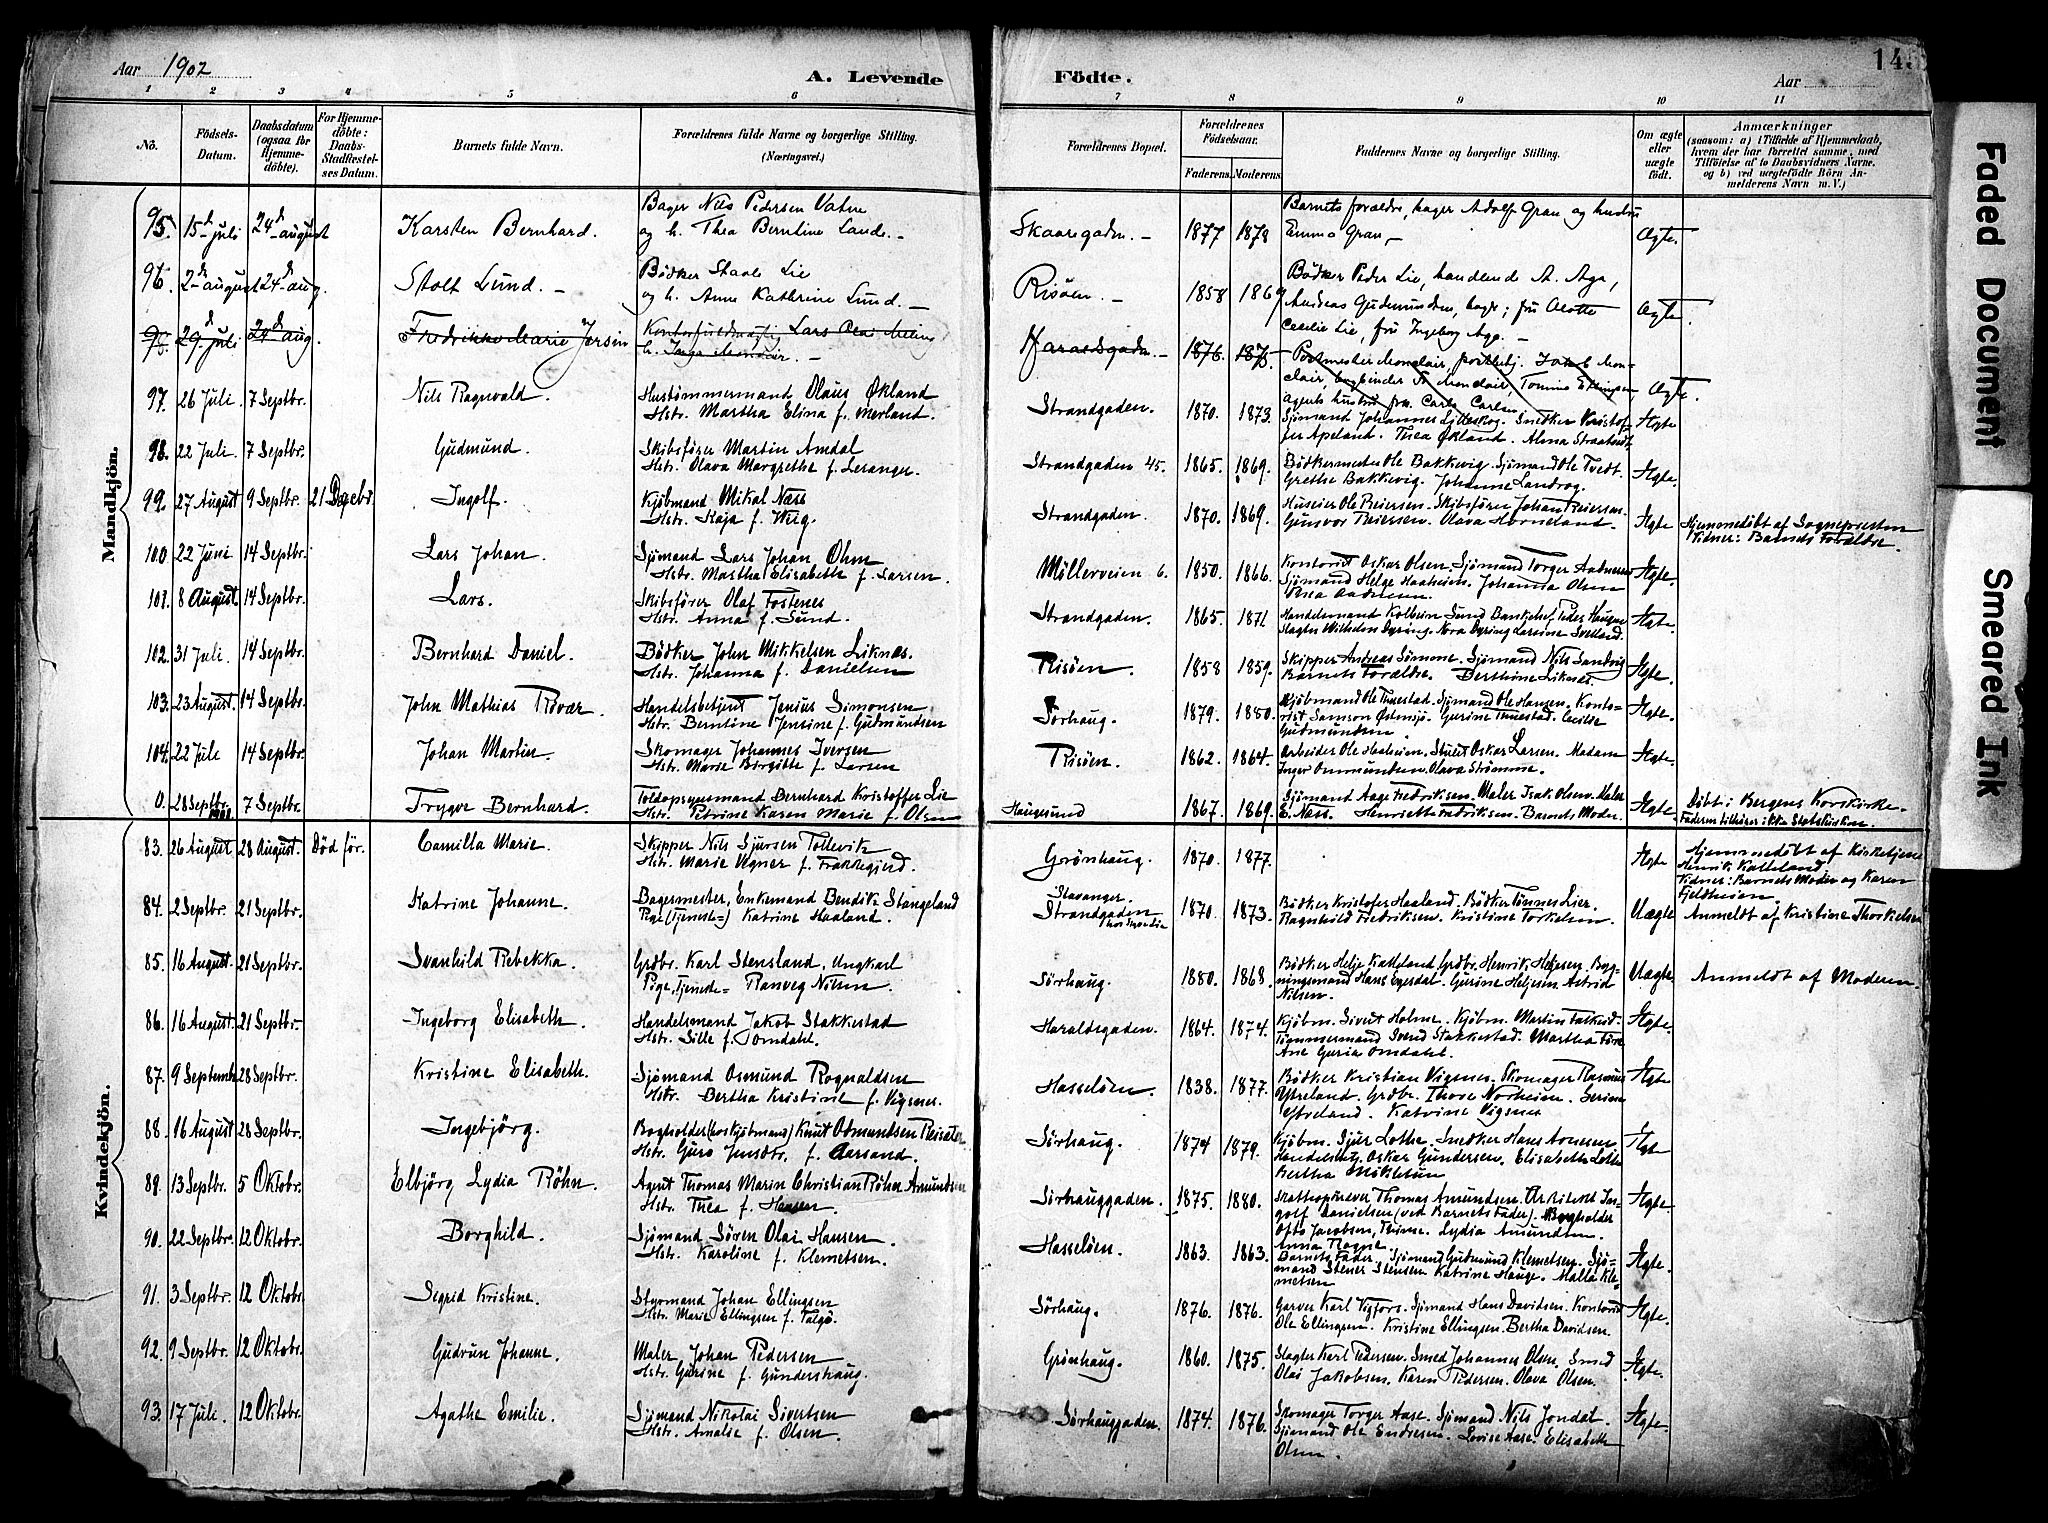 Aar 1902
A. Levende Födte.
Aar
145
1 2 3 4 5 6 7 8 9 10 11
No.
Födsels-Datum.
Daabsdatum (ogsaa for Hjemme-döbte).
For Hjemme-döbte: Daabs-Stadfæstel-ses Datum.
Barnets fulde Navn.
Forældrenes fulde Navne og borgerlige Stilling. (Næringsvei.)
Forældrenes Bopæl.
Forældrenes Födselsaar.
Faderens. Moderens.
Faddernes Navne og borgerlige Stilling.
Om ægte eller uægte födt.
Anmærkninger
(saasom: a) i Tilfælde af Hjemmedaab, hvem der har forrettet samme, med Tilföielse af to Daabsvidners Navne. og b) ved uægtefödte Börn An-melderens Navn m. V.)
Mandkjön.
95. 15d juli 24d august Karsten Bernhard. Bager Nils Pedersen Vatne
og h. Thea Berntine Lande. Skaaregaden. 1877 1878 Barnets forældre, bager Adolf Gran og hustru
Emma Gran Ægte.
96. 2d august 24d aug. Stolt Lund. Bødker Staale Lie
og h. Anne Kathrine Lund. Risöen. 1858 1869 Bödker Peder Lie, handlende A. Aga,
Andreas Gudmundsen, bagr; fru Alotte
Cecilie Lie, fru Ingeborg Aga. Ægte.
29d juli 24d aug. Fredrikke Marie Jersin
Haraldsgaden. 1876. 1875 Postmester Monclair
Ægte.
97. 26 Juli. 7 Septbr. Nils Ragnvald. Hustömmermand Olaus Økland
Hstr. Martha Elina f. Merland. Strandgaden. 1870. 1873. Sjömand Johannes Liltleskog. Snedker Kristof-
fer Apeland. Thea Økland. Alma Straatveit. Ægte
98. 22 Juli. 7 Septbr. Gudmund. Skibsfører Martin Amdal
Hstr. Olava Margrethe f. Leranger. Strandgaden 45. 1865. 1869. Bödkermester Ole Bakkevig. Sjömand Ole Tvedt.
Grethe Bakkevig. Johanne Landrog. Ægte.
99. 27 August 9 Septbr. 21 Decebr. Ingolf. Kjöbmand Mikal Næss
Hstr. Kaja f. Wiig. Strandgaden. 1870. 1869. Huseier Ole Reiersen. Skibsförer Johan Reiersen.
Gunvor Reiersen. Olava Horneland. Ægte Hjemmedöbt af Sognepræsten
Vidner: Barnets Forældre.
100. 22 Juni 14 Septbr. Lars Johan. Sjömand Lars Johan Ohm
Hstr. Martha Elisabeth f. Larsen. Möllerveien 6. 1850. 1866. Kontorist Oskar Olsen. Sjömand Torger Aadnesen
Sjömand Helge Haaheim. Johanna Olsen Ægte.
101. 8 August. 14 Septbr. Lars. Skibsförer Olaf Fostenes
Hstr. Anna f. Sund. Strandgaden. 1865. 1871 Handelsmand Kolbein Sund Bankchef Peder Haugen
Slagter Wilhelm Dyring. Nora Dyring Larsine Svelland. Ægte.
102. 31 Juli. 14 Septbr. Bernhard Daniel. Bödker John Mikkelsen Liknæs.
Hstr. Johanna f. Danielsen Risöen. 1858 1859. Skipper Andreas Sömme. Sjömand Nils Sandvig
Barnets Forældre. Berthine Liknæs. Ægte.
103. 23 August. 14 Septbr. John Mathias Røvær. Handelsbetjent Jenius Simonsen.
Hstr. Berntine Jensine f. Gudmundsen Sörhaug. 1879. 1880. Kjöbmand Ole Thuestad. Sjömand Ole Hansen. Konto-
rist Samson Østensjö. Gurine Thuestad. Cecilie
Gudmundsen. Ægte.
104. 22 Juli 14 Septbr. Johan Martin. Skomager Johannes Iversen
Hstr. Marie Birgitte f. Larsen Risöen. 1862 1864. Arbeider Ole Haaheim. Stuert Oskar Larsen. Madam
Inger Ommundsen. Olava Strömme. Ægte.
0. 28 Septbr. 1901 7 Septbr. Trygve Bernhard. Toldopsynsmand Bernhard Kristoffer Lie
Hstr. Petrine Karen Marie f. Olsen Haugesund 1867. 1869. Sjömand Aage Fredriksen. Maler Isak Olsen. Maler
E. Næss. Henriette Fredriksen. Barnets Moder. Ægte. Döbt i Bergens Korskirke.
Faderen tilhörer ikke Statskirken.
Kvindekjön.
83. 26 August 28 August. Död för. Camilla Marie. Skipper Nils Sjursen Tollevik
Hstr. Marie Vegner f. Frakkagjerd. Grönhaug. 1870. 1877. Ægte Hjemmedöbt af Kirketjener
Henrik Kalleland.
Vidner: Barnets Moder og Karen
Fjeldheim.
84. 2 Septbr. 21 Septbr. Katrine Johanne. Bagermester, Enkemand Bendik Stangeland
Pige (Tjeneste=) Katrine Haaland. Stavanger.
Strandgaden 1870. 1873. Bödker Kristofer Haaland. Bödker Tönnes Lier.
Ragnhild Fredriksen. Kristine Torkelsen. Uægte Anmeldt af Kristine Thorkelsen
85. 16 August. 21 Septbr. Svanhild Rebekka. Grdbr. Karl Stensland, Ungkarl
Pige, Tjeneste= Ranveg Nilsen. Sörhaug. 1880. 1868. Bödker Helje Kalleland. Grdbr. Henrik Heljesen. Byg-
ningsmand Hans Egesdal. Gurine Heljesen. Astrid
Nilsen. Uægte Anmeldt af Moderen.
86. 16 August. 21 Septbr. Ingeborg Elisabeth. Handelsmand Jakob Stakkestad
Hstr. Sille f. Omdahl. Haraldsgaden. 1864. 1874. Kjöbm. Sivert Holme. Kjöbm. Martin Falkeid.
Tömmermand Svend Stakkestad. Martha
Ane Guria Omdahl. Ægte.
87. 9 Septembr 28 Septbr. Kristine Elisabeth. Sjömand Osmund Rognaldsen
Hstr. Bertha Kristine f. Vignes. Hasselöen. 1838. 1877. Bödker Kristian Vignes. Skomager Rasmus
Ystreland. Grdbr. Thore Norheim. Serine
Ystreland. Katrine Vignes Ægte
88. 16 August 28 Septbr. Ingebjörg. Bogholder (hos Kjöbmand) Knut Odmundsen Reisæter
Hstr. Guro Jensdtr. f. Aarsand. Sörhaug. 1874 1879. Kjöbm. Sjur Lothe. Snedker Hans Arnesen
Handelsbetj. Oskar Gundersen. Elisabeth Lothe
Bertha Mökletun Ægte
89. 13 Septbr. 5 Oktobr. Elbjörg Lydia Röhn. Agent Thomas Marin Christian Röhn Amundsen
Hstr. Thea f. Hansen. Sörhauggaden. 1875. 1880. Skatteopkræver Thomas Amundsen. Arkitekt In-
golf Danielsen (ved Barnets Fader). Bogholder
Otto Jacobsen, Lydia Amundsen.
Anna Rogne Ægte.
90. 22 Septbr. 12 Oktobr. Borghild. Sjömand Sören Olai Hansen.
Hstr. Karoline f. Klemetsen. Hasselöen. 1863. 1863. Barnets Fader. Sjömand Gudmund Klemetsen. Sjö-
mand Stener Stensen Katrine Hauge. Malla Kle-
metsen Ægte.
91. 3 Septbr. 12 Oktobr. Segrid Kristine. Styrmand Johan Ellingsen
Hstr. Marie Ellingsen f. Talgö. Sörhaug. 1876. 1876. Garver Karl Vigfors. Sjömand Hans Davidsen. Kontorist
Ole Ellingsen. Kristine Ellingsen. Bertha Davidsen. Ægte.
92. 9 Septbr. 12 Oktobr. Gudrun Johanne. Maler Johan Pedersen
Hstr. Gurine f. Gundershaug. Grönhaug. 1860. 1875. Slagter Karl Pedersen. Smed Johannes Olsen. Smed
Olai Jakobsen. Karen Pedersen. Olava Olsen. Ægte.
93. 17 Juli. 12 Oktobr. Agathe Emilie. Sjömand Nikolai Sivertsen
Hstr. Amalie f. Olsen. Sörhauggaden. 1874. 1876. Skomager Torger Aase. Sjömand Nils Jondal.
Sjömand Ole Endresen. Lovise Aase. Elisabeth
Olsen. Ægte.
Faded Document
Smeared Ink